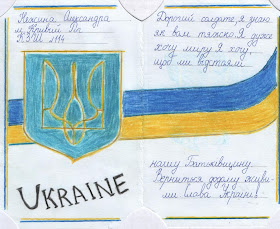 Олександра
м. Кривий Ріг
КЗШ №114
UKRAINE
Дорогий солдате, я знаю
як вам тяжко. Я дуже
хочу миру. Я хочу
що ми відстояли
нашу Батьківщину.
Верниться додому живи-
ми Слава Україні!